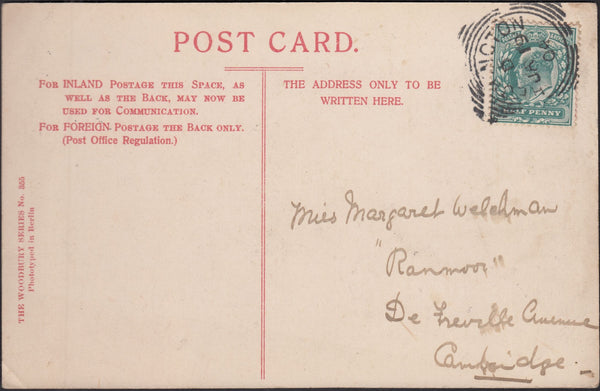 POST CARD.
FOR INLAND POSTAGE THIS SPACE, AS
WELL AS THE BACK, MAY NOW BE
USED FOR COMMUNICATION.
FOR FOREIGN POSTAGE THE BACK ONLY.
(Post Office Regulation.)
THE ADDRESS ONLY TO BE
WRITTEN HERE.
HALF PENNY
THE WOODBURY SERIES No. 355
Phototyped in Berlin
Miss Margaret Welchman
"Ranmoor"
De Freville Avenue
Cambridge.